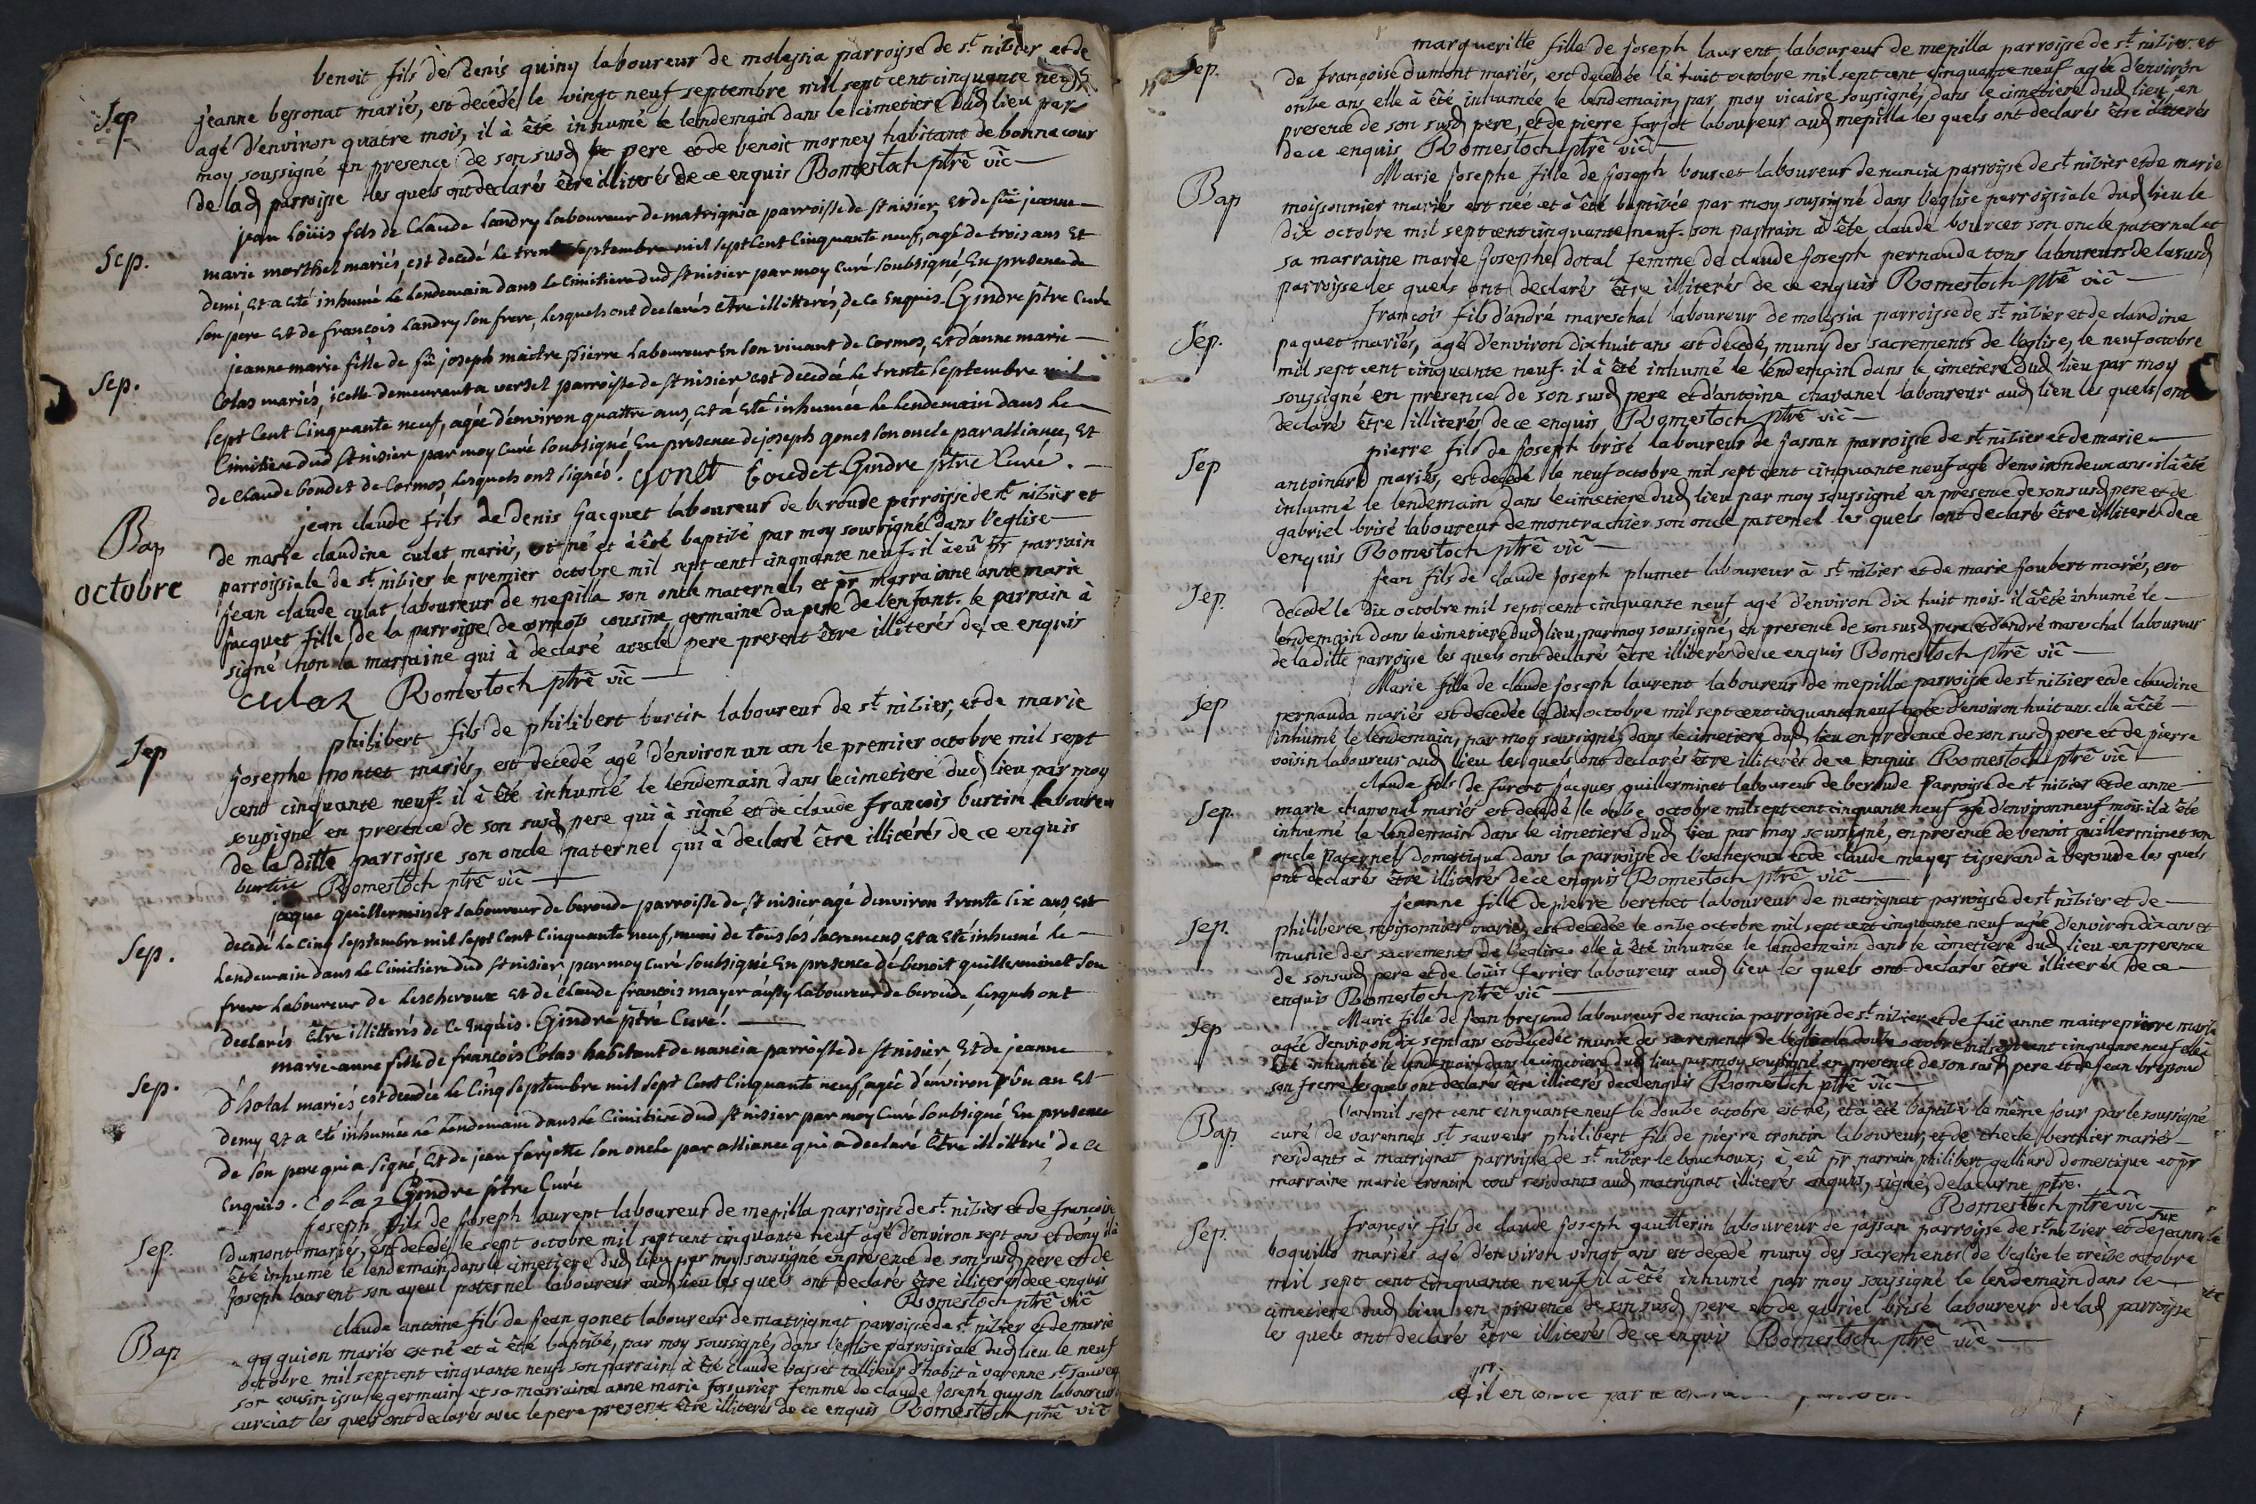 benoit fils de Denis quiny laboureur de molezia parroisse de st nizier et de
Sep jeanne bessonat mariés, est decedé le vingt neuf septembre mil sept cent cinquante neuf
agé d'environ quatre mois, il à êté inhumé le lendemain dans le cimetiere dud lieu par
moy soussigné en presence de son susd pere et de benoit morney habitant de bonnacour
de lad parroisse les quels ont declarés être illiterés de ce enquis Romestoch ptre vic
jean loüis fils de Claude Landry laboureur de matrignia parroisse de st nisier, et de füe jeanne
Sep. marie morthet mariés, est decedé le trente septembre mil sept Cent Cinquante neuf, agé de trois ans et
demi, et a eté inhumé le lendemain dans le Cimitiere dud st nisier par moy Curé Soubsigné, En presence de
son pere et de francois Landry son frere, lesquels ont declarés être illitterés, de ce Enquis. Gindre ptre Curé
jeanne marie fille de fû joseph maitre pierre laboureur En son vivant de Cormos, et d'anne marie
Sep. Colas mariés, icelle demeurant a versel parroisse de st nisier est decedée le trente septembre mil
sept Cent Cinquante neuf, agée d'environ quattre ans, et á eté inhumée le lendemain dans le
Cimitiere dud st nisier par moy Curé Soubsigné En presence de joseph gonet son oncle par alliance, et
de Claude boudet de Cormos, lesquels ont signés. gonet boudet Gindre ptre Curé.
jean claude fils de denis jacquet laboureur de beroude parroisse de st nizier et
Bap de marie claudine culat mariés, est né et à êté baptizé par moy soussigné dans l'eglise
octobre parroissiale de st nizier le premier octobre mil sept cent cinquante neuf. il à eû pr parrain
jean claude culat laboureur de mepilla son oncle maternel, et pr marrainne anne marie
jacquet fille de la parroisse de cormos cousine germaine du pere de l'enfant. le parrain à
signé non la marraine qui à declaré avec le pere present être illiterés de ce enquis
culaz Romestoch ptre vic
philibert fils de philibert burtin laboureur de st nizier, et de marie
Sep josephe pontet mariés, est decedé agé d'environ un an le premier octobre mil sept
cent cinquante neuf. il à êté inhumé le lendemain dans le cimetiere dud lieu par moy
soussigné en presence de son susd pere qui à signé et de claude françois burtin laboureur
de laditte parroisse son oncle paternel qui à declaré être illiterés de ce enquis
burtin Romestoch ptre vic
jaque guillerminet laboureur de beroude parroisse de st nisier agé d'environ trente six ans est
Sep. decedé le Cinq septembre mil sept Cent Cinquante neuf, muni de tous les sacremens et a eté inhumé le
lendemain dans le Cimitiere dud st nisier par moy Curé Soubsigné En presence de benoit guillerminet son
frere laboureur de Lescheroux et de Claude francois mayer aussy laboureur de beroude, lesquels ont
declarés être illitterés de ce Enquis. Gindre ptre Curé.
marie anne fille de francois Colas habitant de nancia parroisse de st nisier et de jeanne
Sep. d'hotal mariés, est decedée le Cinq septembre mil sept Cent Cinquante neuf, agée d'environ d'un an et
demy et a eté inhumée le lendemain dans le Cimitiere dud st nisier par moy Curé Soubsigné En presence
de son pere qui a signé, et de jean farjette son oncle par alliance qui a declaré être illitteré de ce
Enquis. Colaz Gindre ptre Curé
joseph fils de joseph laurent laboureur de mepilla parroisse de st nizier et de francoise
Sep. dumont mariés, est decedé le sept octobre mil sept cent cinquante neuf agé d'environ sept ans et demy il à
êté inhumé le lendemain dans le cimetiere dud lieu par moy soussigné en presence de son susd pere et de
joseph laurent son ayeul paternel laboureur aud lieu les quels ont declarés être illiterés de ce enquis
Romestoch ptre vic
claude antoine fils de jean gonet laboureur de matrignat parroisse de st nizier et de marie
Bap guion mariés est né et à êté baptizé, par moy soussigné, dans l'eglise parroissiale dud lieu le neuf
octobre mil sept cent cinquante neuf son parrain à êté claude vasset tallieur d'habit à varenne st sauveur
son cousin issu de germain et sa marraine anne marie fossurier femme de claude joseph guyon laboureur
curciat les quels ont declarés avec le pere present être illiterés de ce enquis Romestoch ptre vic
margueritte fille de joseph laurent laboureur de mepilla parroisse de st nizier et
Sep. de françoise dumont mariés, est decedée le huit octobre mil sept cent cinquante neuf agée d'environ
onze ans elle à êté inhumée le lendemain, par moy vicaire soussigné, dans le cimetiere dud lieu, en
presence de son susd pere, et de pierre farjot laboureur aud mepilla les quels ont declarés être illiterés
de ce enquis Romestoch ptre vic
Marie josephe fille de joseph bourcet laboureur de nancia parroisse de st nizier et de marie
Bap moissonnier mariés est née et à êté baptizée par moy soussigné dans l'eglise parroissiale dud lieu le
dix octobre mil sept cent cinquante neuf. son parrain à êté claude bourcet son oncle paternel et
sa marraine marie josephe dotal femme de claude joseph pernauda tous laboureurs de la susd
parroisse les quels ont declarés être illiterés de ce enquis Romestoch ptre vic
françois fils d'andré mareschal laboureur de molezia parroisse de st nizier et de claudine
Sep. paquet mariés, agé d'environ dix huit ans est decedé, muny des sacrements de l'eglise, le neuf octobre
mil sept cent cinquante neuf. il à êté inhumé le lendemain dans le cimetiere dud lieu par moy
soussigné en presence de son susd pere et d'antoine chavanel laboureur aud lieu les quels ont
declarés être illiterés de ce enquis Romestoch ptre vic
pierre fils de joseph brisé laboureur de jassan parroisse de st nizier et de marie
Sep antoinard mariés, est decedé le neuf octobre mil sept cent cinquante neuf agé d'environ deux ans. il à êté
inhumé le lendemain dans le cimetiere dud lieu par moy soussigné en presence de son susd pere et de
gabriel brisé laboureur de montrachier son oncle paternel les quels ont declarés être illiterés de ce
enquis Romestoch ptre vic
jean fils de claude joseph plumet laboureur à st nizier et de marie joubert mariés, est
Sep. decedé le dix octobre mil sept cent cinquante neuf agé d'environ dix huit mois. il à êté inhumé le
lendemain dans le cimetiere dud lieu, par moy soussigné, en presence de son susd pere et d'andré mareschal laboureur
de la ditte parroisse les quels ont declarés être illiterés de ce enquis Romestoch ptre vic
Marie fille de claude joseph laurent laboureur de mepilla parroisse de st nizier et de claudine
Sep pernauda mariés est decedée le dix octobre mil sept cent cinquante neuf agée d'environ huit ans. elle à êté
inhumé le lendemain, par moy soussigné, dans le cimetiere dud lieu en presence de son susd pere et de pierre
voisin laboureur aud lieu les quels ont declarés être illiterés de ce enquis Romestoch ptre vic
claude fils de furent jacques guillerminet laboureur de beroude parroisse de st nizier et de anne
Sep. marie chamonal mariés est decedé le onze octobre mil sept cent cinquante neuf agé d'environ neuf mois il à êté
inhumé le lendemain dans le cimetiere dud lieu par moy soussigné, en presence de benoit guillerminet son
oncle paternel domestique dans la parroisse de l'escheroux et de claude mayer tisserand à beroude les quels
ont declarés être illiterés de ce enquis Romestoch ptre vic
jeanne fille de pierre berthet laboureur de matrignat parroisse de st nizier et de
Sep. philiberte moissonnier mariés, est decedée le onze octobre mil sept cent cinquante neuf agée d'environ dix ans et
munie des sacrements de l'eglise elle à êté inhumée le lendemain dans le cimetiere dud lieu en presence
de son susd pere et de loüis ferrier laboureur aud lieu les quels ont declarés être illiterés de ce
enquis Romestoch ptre vic
Marie fille de jean bressoud laboureur de nancia parroisse de st nizier et de füe anne maitrepierre mariés
Sep agée d'environ dix sept ans est decedée munie des sacrements de l'eglise le douze octobre mil sept cent cinquante neuf elle à
êté inhumée le lendemain dans le cimetiere dud lieu par moy soussigné en presence de son susd pere et de jean bressoud
son frere les quels ont declarés être illiterés de ce enquis Romestoch ptre vic
l'an mil sept cent cinquante neuf le douze octobre est né, et à êté baptizé le même jour par le soussigné
Bap curé de varennes st sauveur philibert fils de pierre trontin laboureur, et de thecle berthier mariés
residants à matrignat parroisse de st nizier le bouchoux; à eû pr parrain philibert galliard domestique et pr
marraine marie trontin tout residants aud matrignat illiterés enquis, signé, delacurne ptre.
Romestoch ptre vic
françois fils de claude joseph gautterin laboureur de jassan parroisse de st nizier et de füe jeanne
Sep. boquillo mariés agé d'environ vingt ans est decedé muny des sacrements de l'eglise le treize octobre
mil sept cent cinquante neuf il à êté inhumé par moy soussigné le lendemain dans le
cimetiere dud lieu en presence de son susd pere et de gabriel brisé laboureur de lad parroisse
les quels ont declarés être illiterés de ce enquis Romestoch ptre vic